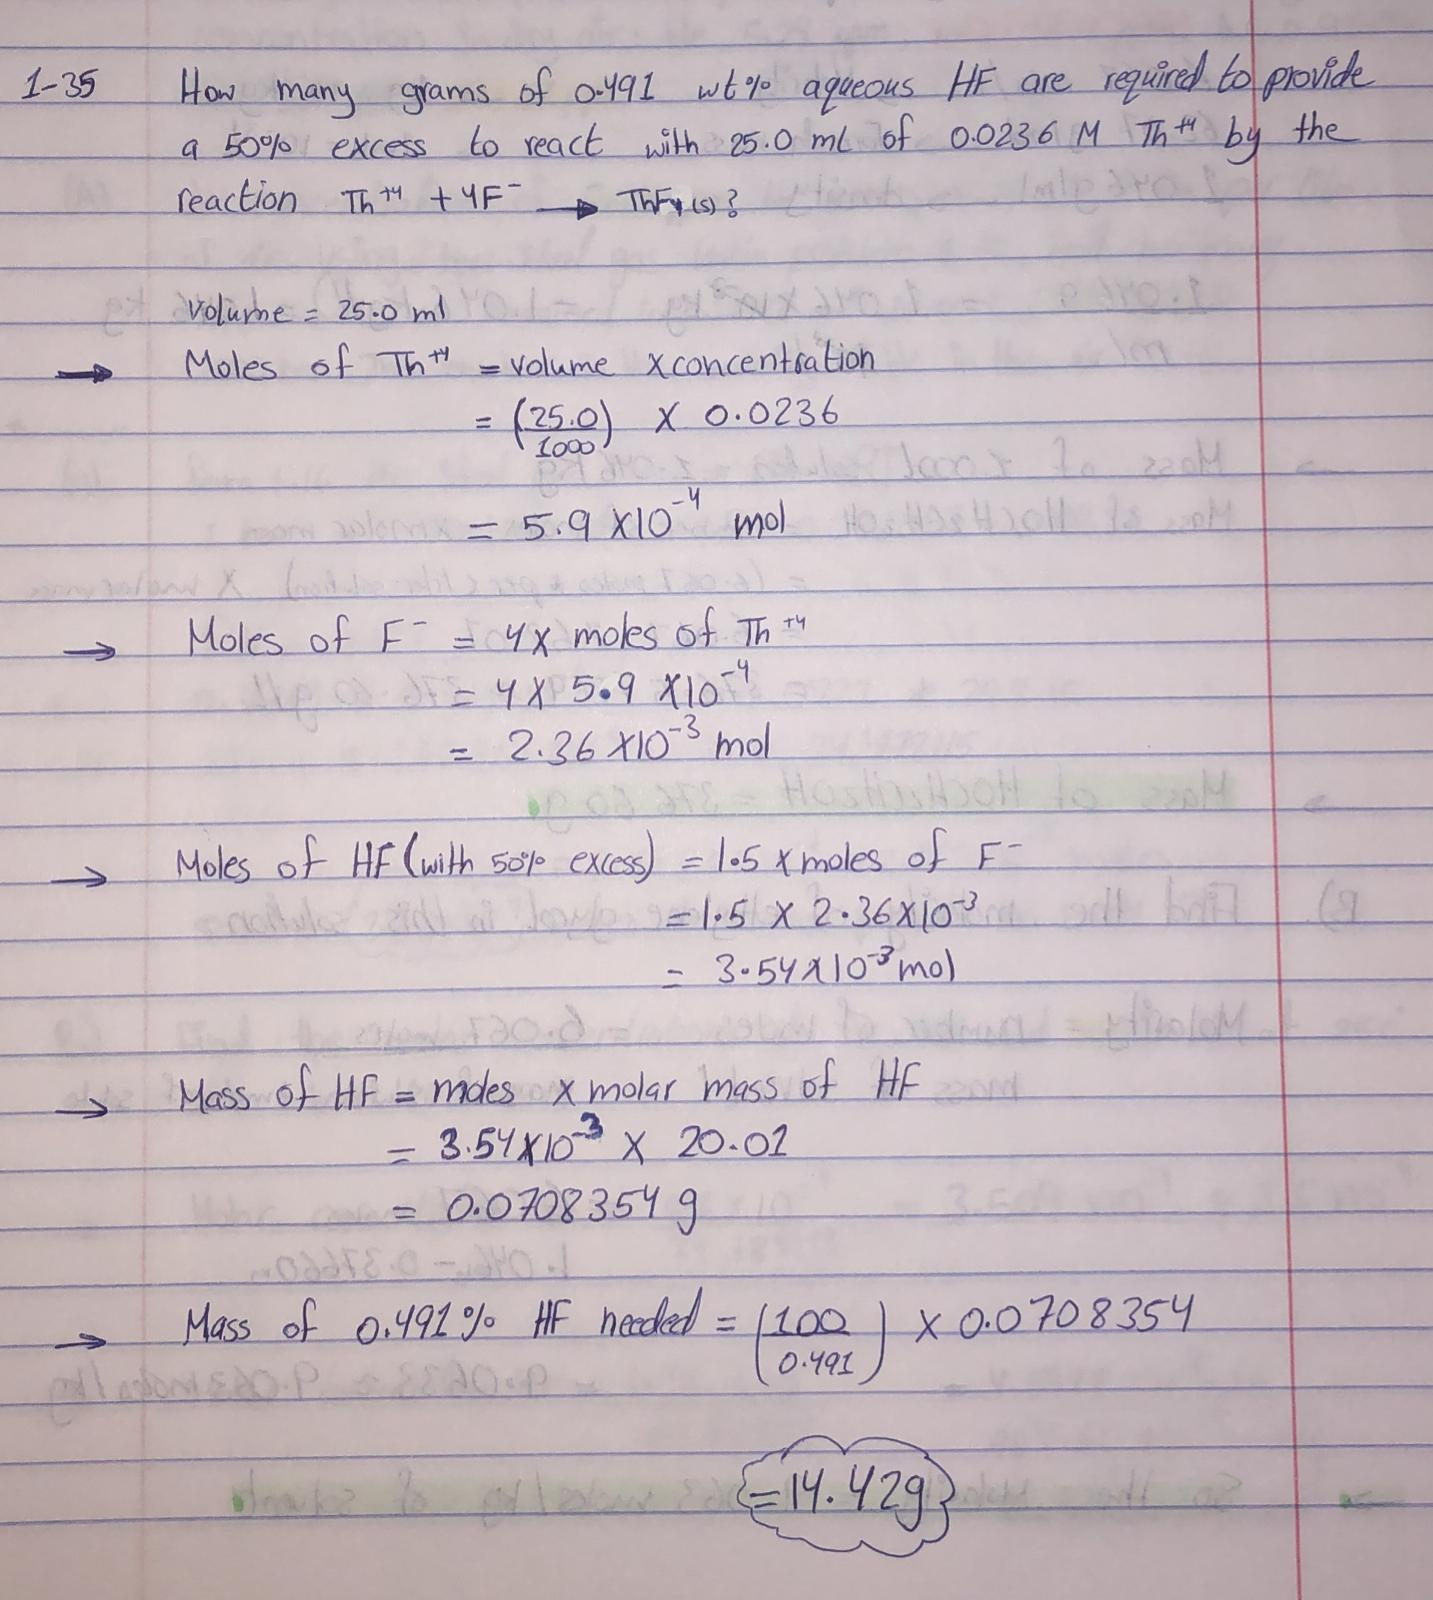 1-35 How many grams of 0.491 wt% aqueous HF are required to provide
a 50% excess to react with 25.0 ml of 0.0236 M Th⁺⁴ by the
reaction Th⁺⁴ + 4F⁻ → ThF₄(s)?
Volume = 25.0 ml
→ Moles of Th⁺⁴ = volume x concentration
= (25.0/1000) x 0.0236
= 5.9 x10⁻⁴ mol
→ Moles of F⁻ = 4x moles of Th⁺⁴
= 4 x 5.9 x10⁻⁴
= 2.36 x10⁻³ mol
→ Moles of HF (with 50% excess) = 1.5 x moles of F⁻
= 1.5 x 2.36x10⁻³
= 3.54x10⁻³ mol
→ Mass of HF = moles x molar mass of HF
= 3.54x10⁻³ x 20.01
= 0.0708354 g
→ Mass of 0.491% HF needed = (100/0.491) x 0.0708354
= 14.42g